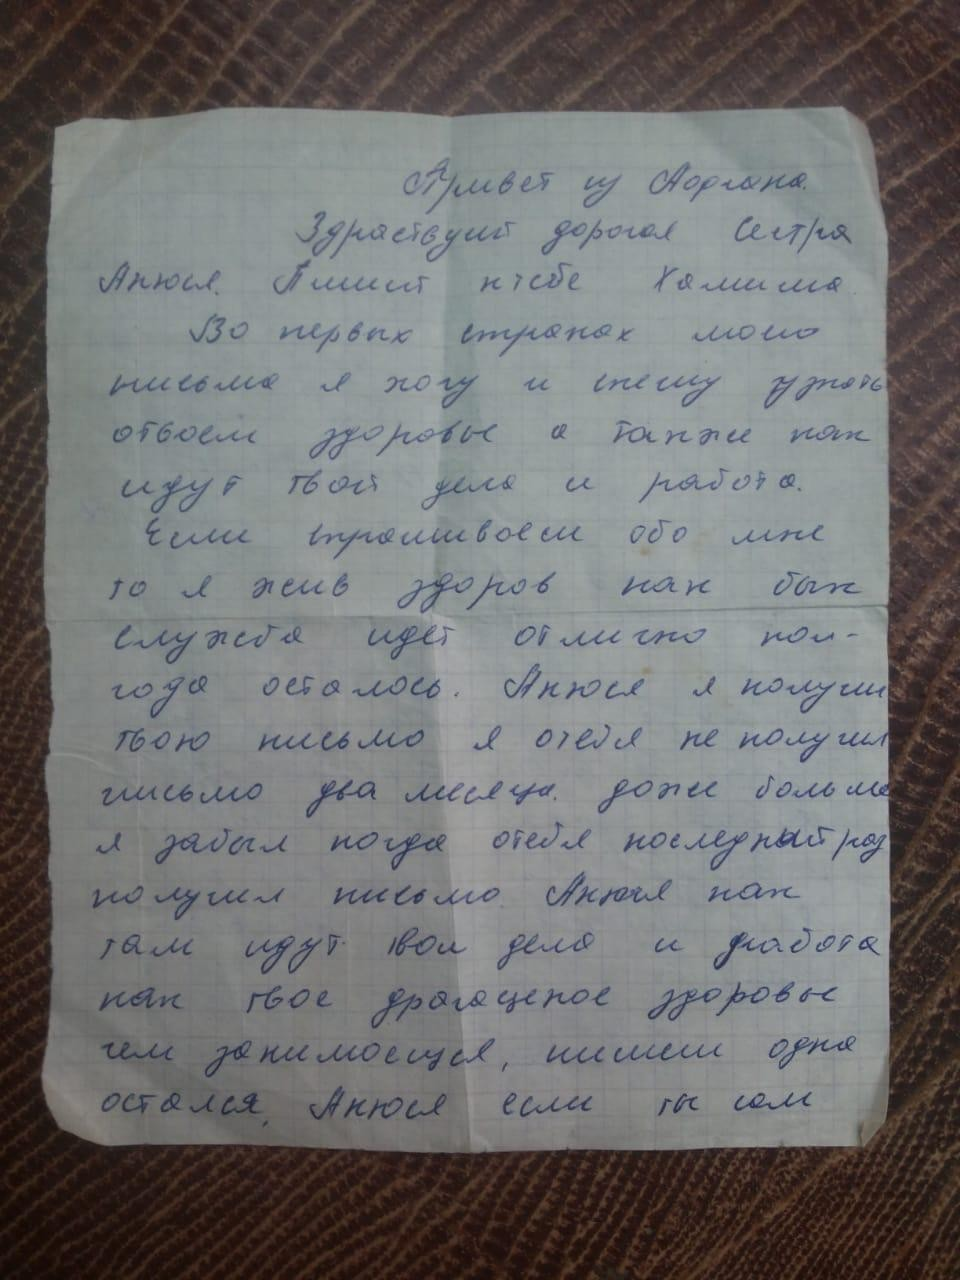 Привет из Аоргана.
Здраствуий дорогая Сестра
Анюся. Пишит ктебе Хамима.
Во первых странах моео
письма я хочу и спешу узнать
отвоем здоровье а также как
идут твои дела и работа.
Если спрашиваеш обо мне
то я жив здоров как бык
служба идет отлично пол-
года осталось. Анюся я получил
твою письмо я отебя не получил
письмо два месяца. даже больше
я забыл когда отебя последнай раз
получил письмо Анюся как
там идут твои дела и работа
как твое драгаценое здоровье
чем занимаешся, пишеш одна
остался, Анюся если ты сам